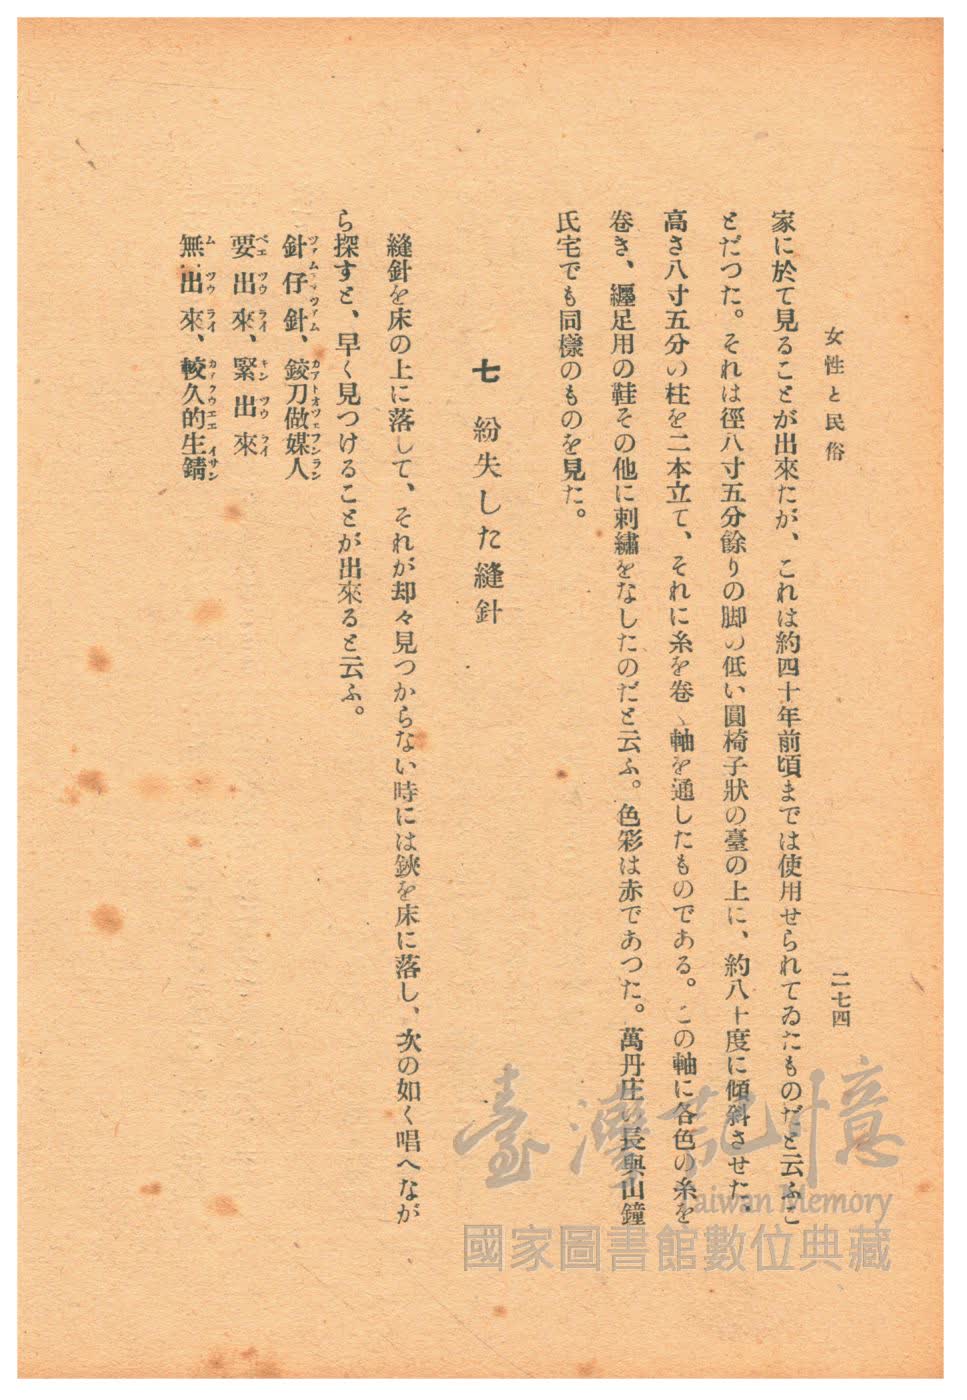 女性と民俗
二七四
家に於て見ることが出來たが、これは約四十年前頃までは使用せられてゐたものだと云ふこ
とだつた。それは徑八寸五分餘りの脚の低い圓椅子狀の臺の上に、約八十度に傾斜させた、
高さ八寸五分の柱を二本立て、それに糸を卷く軸を通したものである。この軸に各色の糸を
卷き、纒足用の鞋その他に刺繡をなしたのだと云ふ。色彩は赤であつた。萬丹庄の長興山鐘
氏宅でも同樣のものを見た。
七 紛失した縫針
縫針を床の上に落して、それが却々見つからない時には鋏を床に落し、次の如く唱へなが
ら探すと、早く見つけることが出來ると云ふ。
針仔針、鉸刀做媒人
要出來、緊出來
無出來、較久的生銹
臺灣記憶
Taiwan Memory
國家圖書館數位典藏